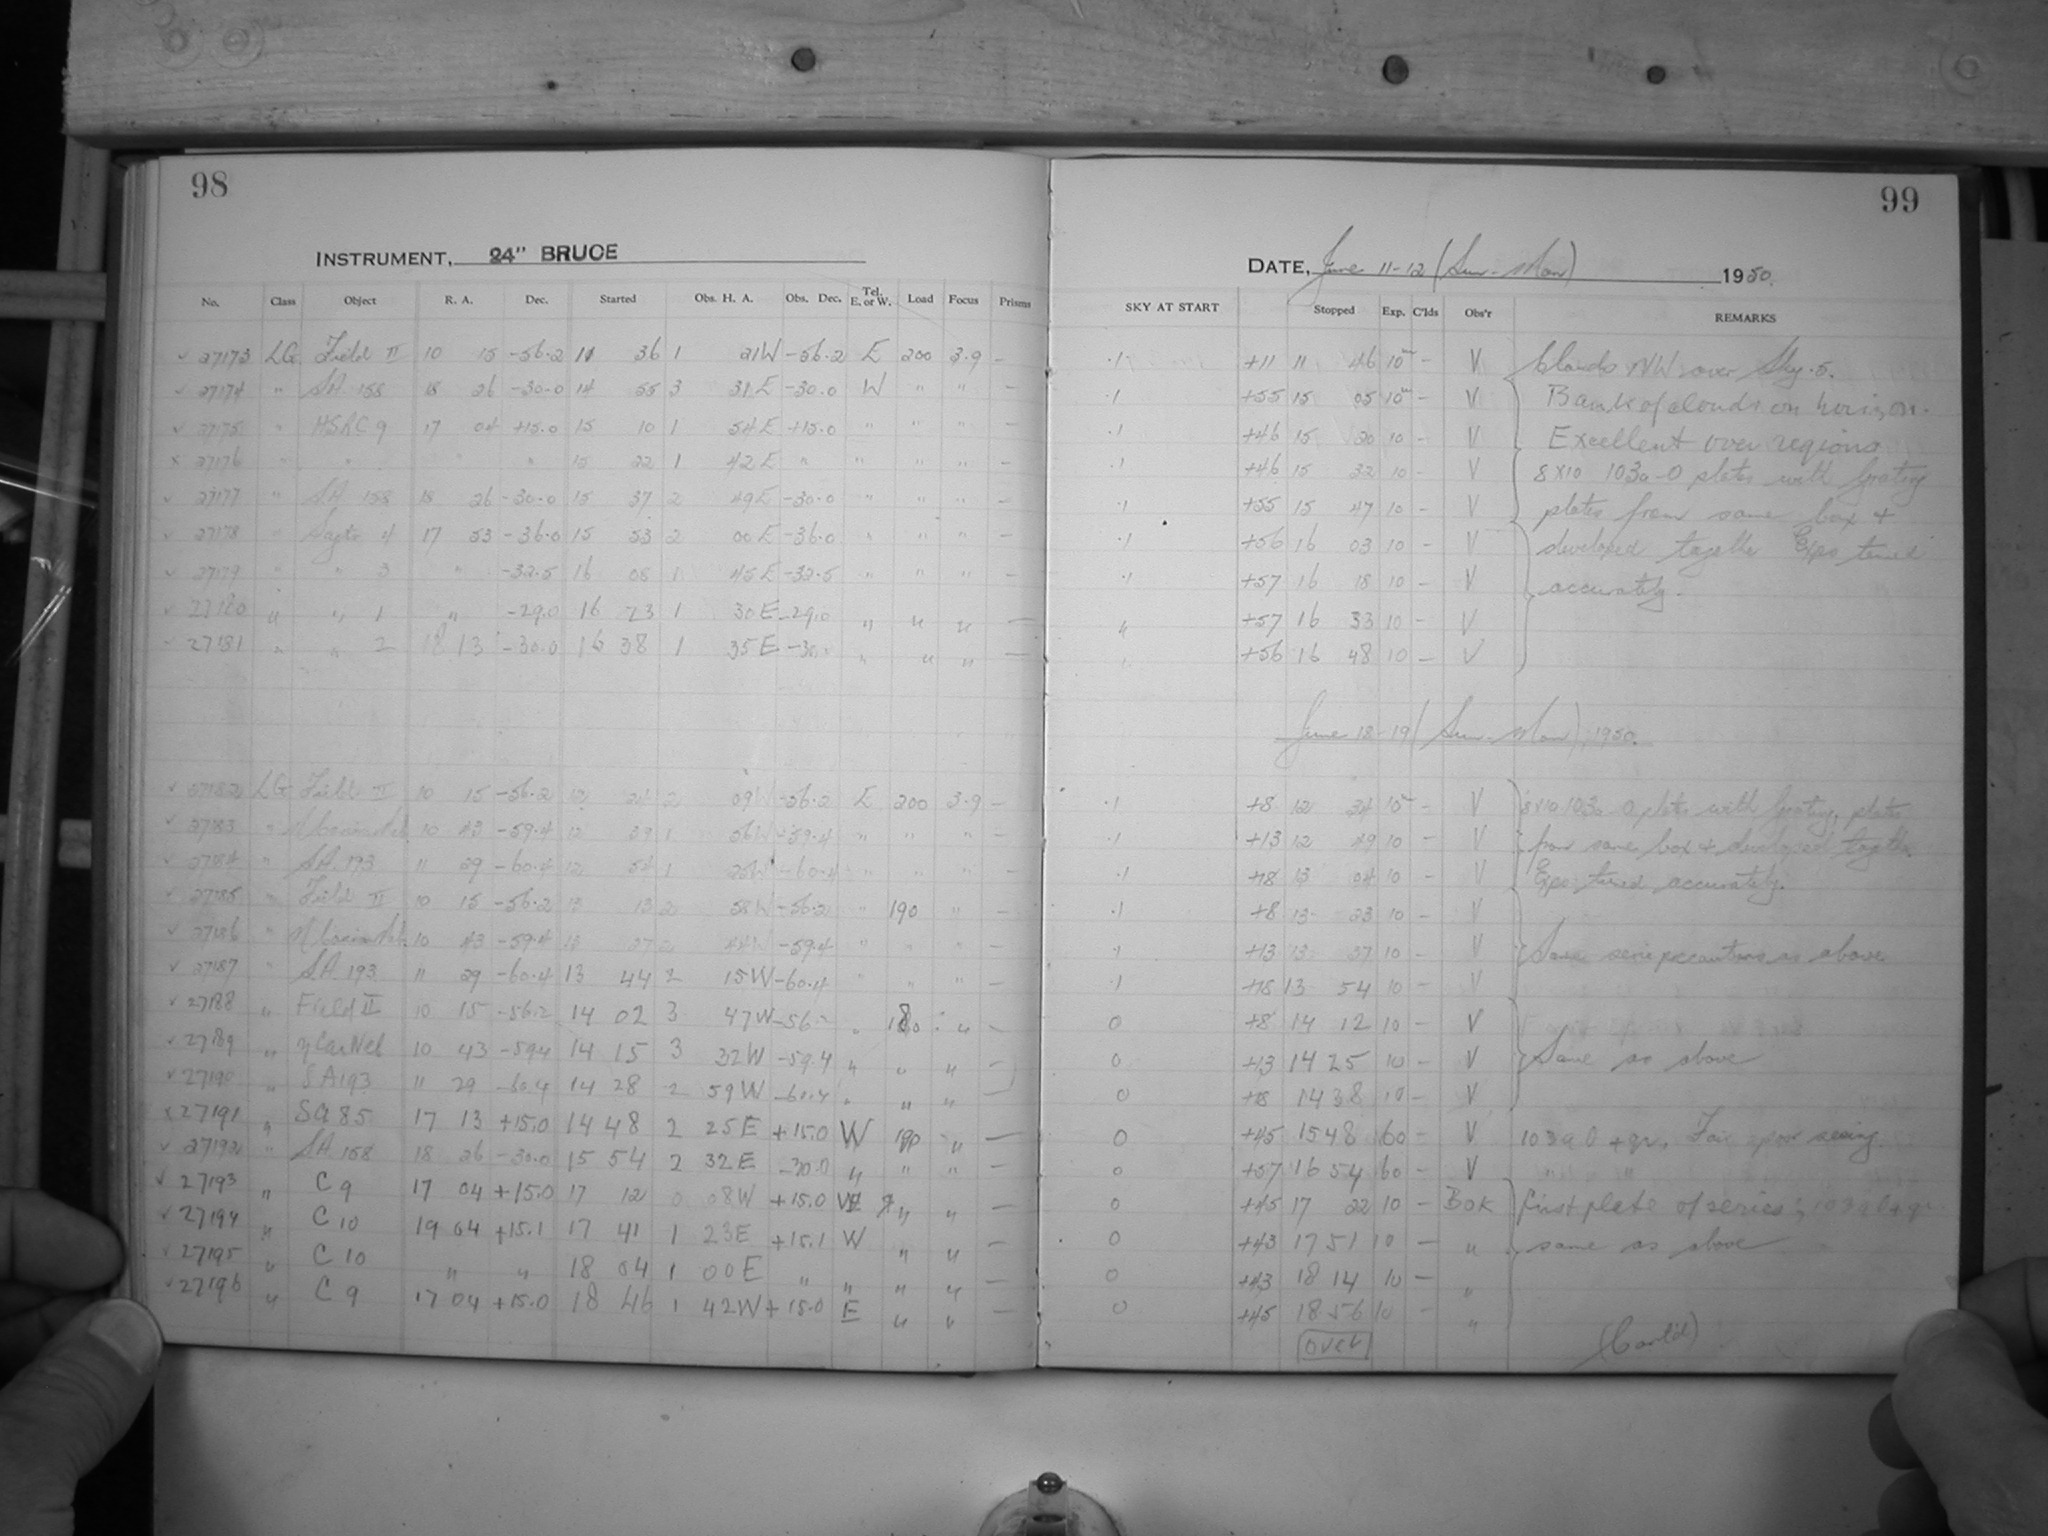 98
INSTRUMENT, 24" BRUCE
No. Class Object R. A. Dec. Started Obs. H. A. Obs. Dec. Tel. E. or W. Load Focus Prisms
27173 LG Field II 10 15 -56.2 11 36 1 21W -56.2 E 200 3.9 -
27174 " SA 158 18 26 -30.0 14 55 3 31E -30.0 W " " -
27175 " HSRC 9 17 04 +15.0 15 10 1 54E +15.0 " " " -
27176 " " " 15 22 1 42E " " " " -
27177 " SA 158 18 26 -30.0 15 37 2 49E -30.0 " " " -
27178 " Sagtr 4 17 53 -36.0 15 53 2 00E -36.0 " " " -
27179 " " 3 " -32.5 16 08 1 45E -32.5 " " " -
27180 " " 1 " -29.0 16 23 1 30E -29.0 " " " -
27181 " " 2 18 13 -30.0 16 38 1 35E " " " -
27182 LG Field II 10 15 -56.2 12 24 2 09W -56.2 E 200 3.9 -
27183 " 10 43 -59.4 12 39 1 56W -59.4 " " " -
27184 " SA 193 11 29 -60.4 12 54 1 25W -60.4 " " " -
27185 " Field II 10 15 -56.2 13 13 2 58W -56.2 " 190 " -
27186 " 10 43 -59.4 13 27 2 44W -59.4 " " " -
27187 " SA 193 11 29 -60.4 13 44 2 15W -60.4 " " " -
27188 " Field II 10 15 -56.2 14 02 3 47W " 180 " -
27189 " η Car Neb 10 43 -59.4 14 15 3 32W -59.4 " " " -
27190 " SA193 11 29 -60.4 14 28 2 59W -60.4 " " " -
27191 " SA 85 17 13 +15.0 14 48 2 25E +15.0 W 180 " -
27192 " SA 158 18 26 -30.0 15 54 2 32E -30.0 " " " -
27193 " C 9 17 04 +15.0 17 12 0 08W +15.0 " " -
27194 " C 10 19 04 +15.1 17 41 1 23E +15.1 W " " -
27195 " C 10 " " 18 04 1 00E " " " " -
27196 " C 9 17 04 +15.0 18 46 1 42W +15.0 E " " -
99
DATE, June 11-12 (Sun-Mon) 1950.
SKY AT START Stopped Exp. C'lds Obs'r REMARKS
.1 +11 11 46 10m - V Clouds NW over Sky .5.
.1 +55 15 05 10m - V Bank of clouds on horizon.
.1 +46 15 20 10 - V Excellent over regions
.1 +46 15 32 10 - V 8x10 103a-O plates with grating
.1 +55 15 47 10 - V plates from same box +
.1 +56 16 03 10 - V developed together Exps timed
.1 +57 16 18 10 - V accurately.
" +57 16 33 10 - V
" +56 16 48 10 - V
June 18-19 (Sun-Mon), 1950.
.1 +8 12 34 10m - V 8x10 103a-O plates with grating, plates
.1 +13 12 49 10 - V from same box + developed together
.1 +18 13 04 10 - V Exps timed accurately.
.1 +8 13 23 10 - V
.1 +13 13 37 10 - V Same precautions as above
.1 +18 13 54 10 - V
0 +8 14 12 10 - V
0 +13 14 25 10 - V Same as above
0 +18 14 38 10 - V
0 +45 15 48 60 - V 103a O + gr. Fair poor seeing.
0 +57 16 54 60 - V " " "
0 +45 17 22 10 - BOK first plate of series; 103a O + gr
0 +43 17 51 10 - " same as above
0 +43 18 14 10 - "
0 +45 18 56 10 - "
over (Cont'd)